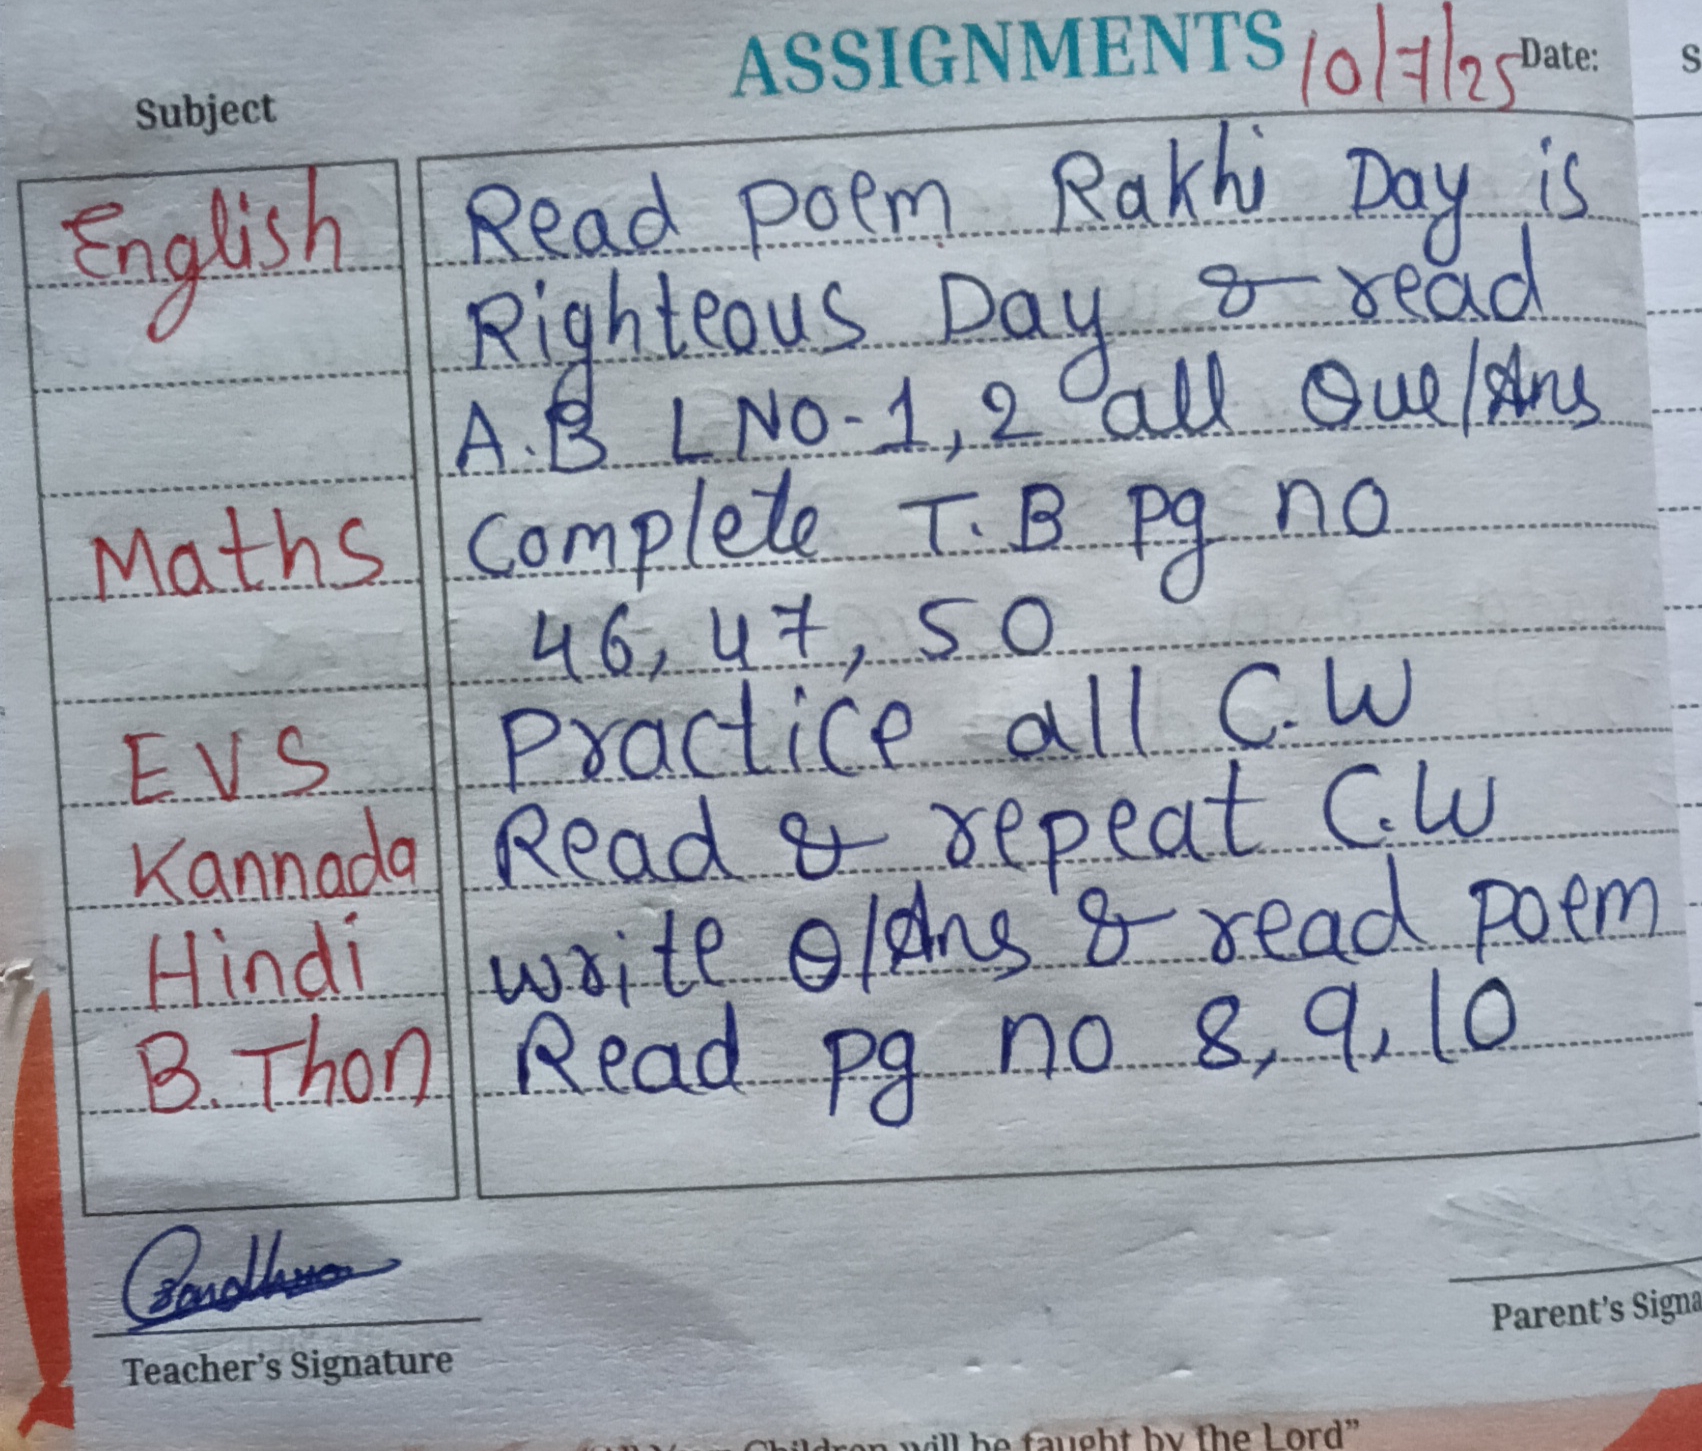 ASSIGNMENTS 10/7/25 Date:
Subject
English Read poem Rakhi Day is
Righteous Day & read
A.B L NO-1, 2 all Que/Ans
Maths Complete T.B pg no
46, 47, 50
EVS Practice all C.W
Kannada Read & repeat C.W
Hindi write Q/Ans & read poem
B. Thon Read pg no 8, 9, 10
Teacher's Signature
Parent's Signa
Children will be taught by the Lord"